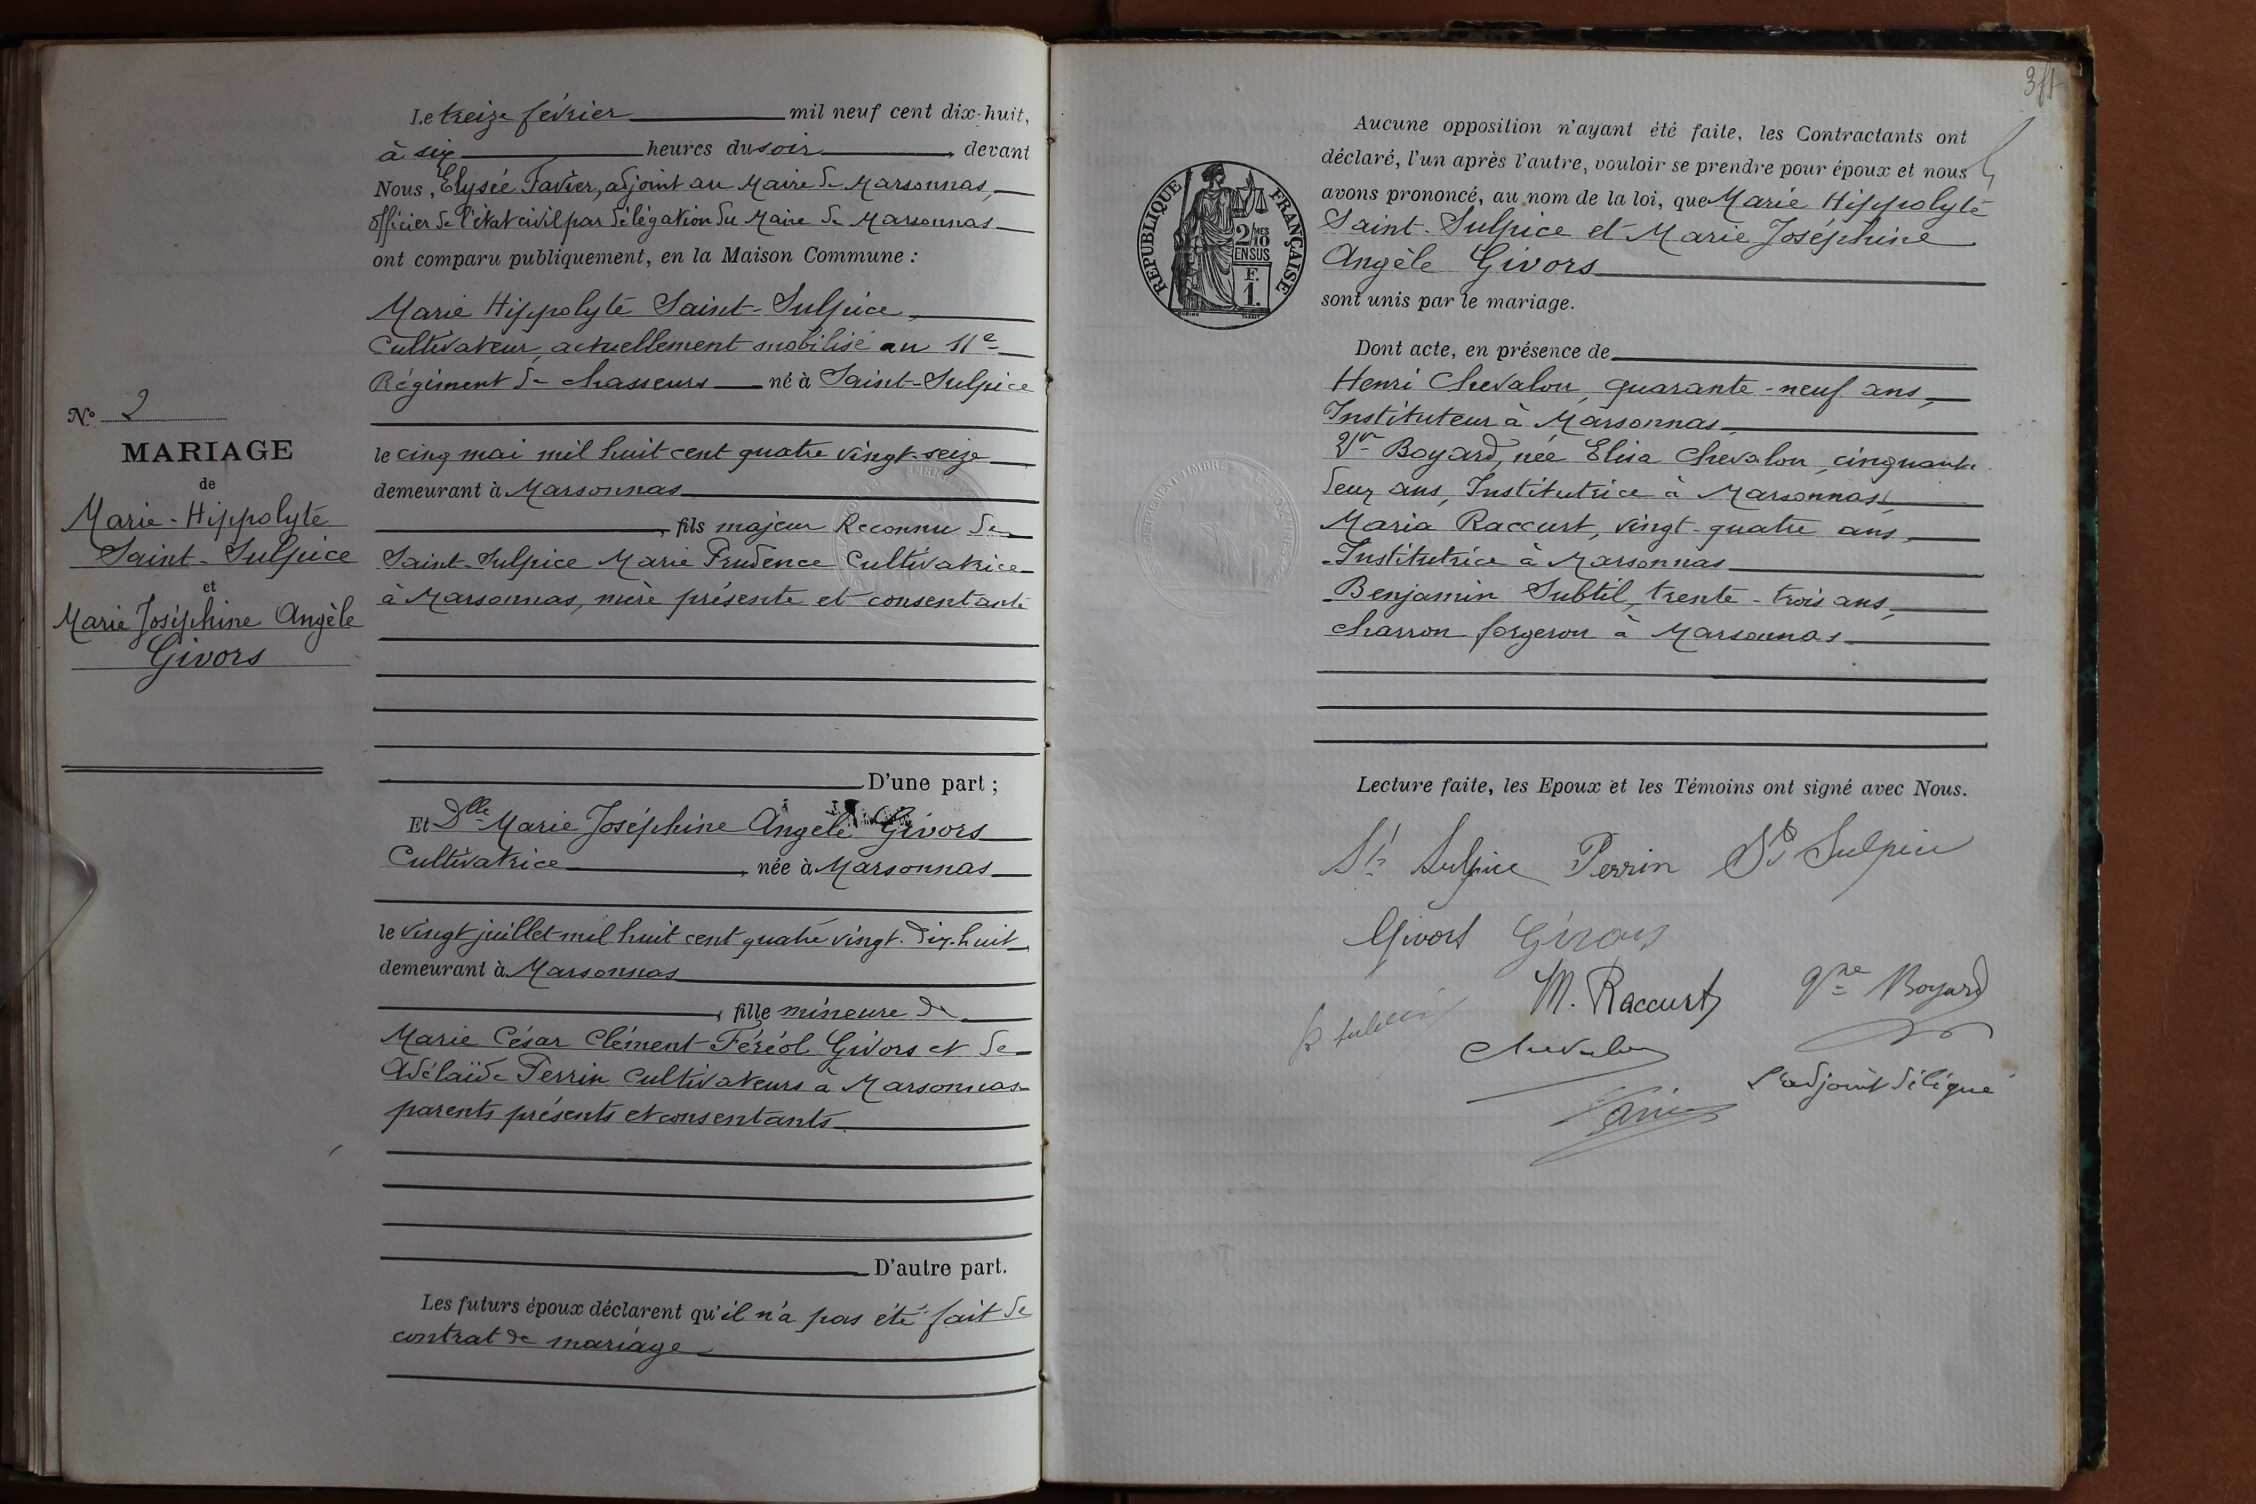 Le treize février mil neuf cent dix-huit,
à six heures du soir, devant
Nous, Elysée Favier, adjoint au Maire de Marsonnas,
officier de l'état civil par délégation du Maire de Marsonnas
ont comparu publiquement, en la Maison Commune :
Marie Hippolyte Saint-Sulpice,
Cultivateur, actuellement mobilisé au 11e
Régiment de chasseurs né à Saint-Sulpice
No 2
MARIAGE
de
Marie-Hippolyte
Saint-Sulpice
et
Marie Joséphine Angèle
Givors
le cinq mai mil huit cent quatre vingt-seize
demeurant à Marsonnas
, fils majeur Reconnu de
Saint-Sulpice Marie Prudence Cultivatrice
à Marsonnas, mère présente et consentante
D'une part ;
Et Dlle Marie Joséphine Angèle Givors
Cultivatrice, née à Marsonnas
le vingt juillet mil huit cent quatre vingt-dix-huit
demeurant à Marsonnas
, fille mineure de
Marie César Clément Féréol Givors et de
Adélaïde Perrin Cultivateurs à Marsonnas
parents présents et consentants.
D'autre part.
Les futurs époux déclarent qu'il n'a pas été fait de
contrat de mariage
Aucune opposition n'ayant été faite, les Contractants ont
déclaré, l'un après l'autre, vouloir se prendre pour époux et nous
avons prononcé, au nom de la loi, que Marie Hippolyte
Saint-Sulpice et Marie Joséphine
Angèle Givors
sont unis par le mariage.
RÉPUBLIQUE FRANÇAISE
2/10 MES
EN SUS
F.
1.
Dont acte, en présence de
Henri Chevalon, quarante-neuf ans,
Instituteur à Marsonnas,
Vve Boyard, née Elisa Chevalon, cinquante
deux ans, Institutrice à Marsonnas,
Maria Raccurt, vingt-quatre ans,
Institutrice à Marsonnas
Benjamin Subtil, trente-trois ans,
charron forgeron à Marsonnas
Lecture faite, les Epoux et les Témoins ont signé avec Nous.
St Sulpice Perrin St Sulpice
Givors Givors
M. Raccurt Vve Boyard
Chevalon
L'adjoint délégué
Favier